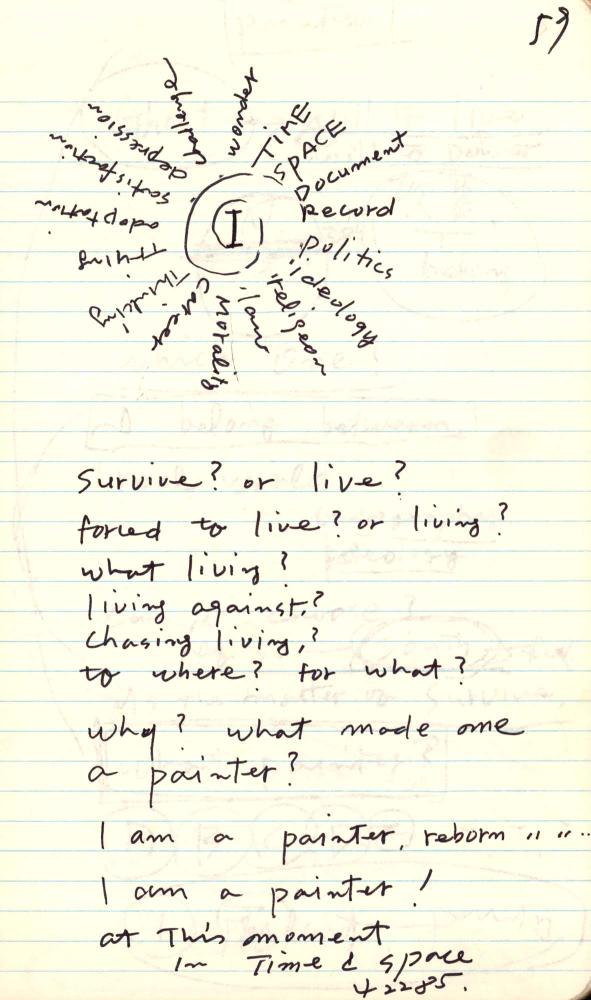 59
wonder
TIME
SPACE
Document
Record
politics
ideology
religeon
law
Morality
career
Thinking
Trying
adaptation
satisfaction
depression
challenge
I
Survive? or live?
forced to live? or living?
what living?
living against,?
chasing living,?
to where? for what?
why? what made me
a painter?
I am a painter, reborn " " ...
I am a painter!
at This moment
In Time & space
4 22 85.